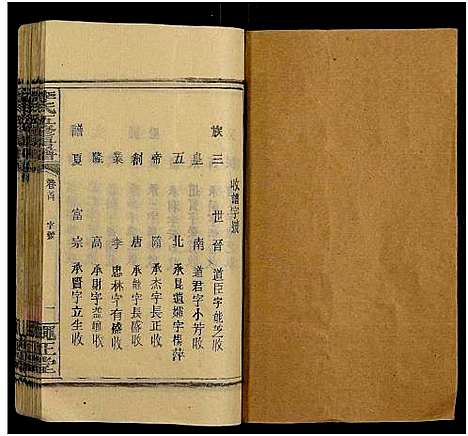 收譜字號
族三 世晉 道臣字龍芝收
皇 南 道君字小芳收
五 北 承
帝 隋 承杰字長正收
創 唐 承字長盛收
業 李 忠林字有盛收
隆 高 承財字益順收
譜夏 富宗 承賢字立生收
氏五修族譜
卷首
字號
一
正堂